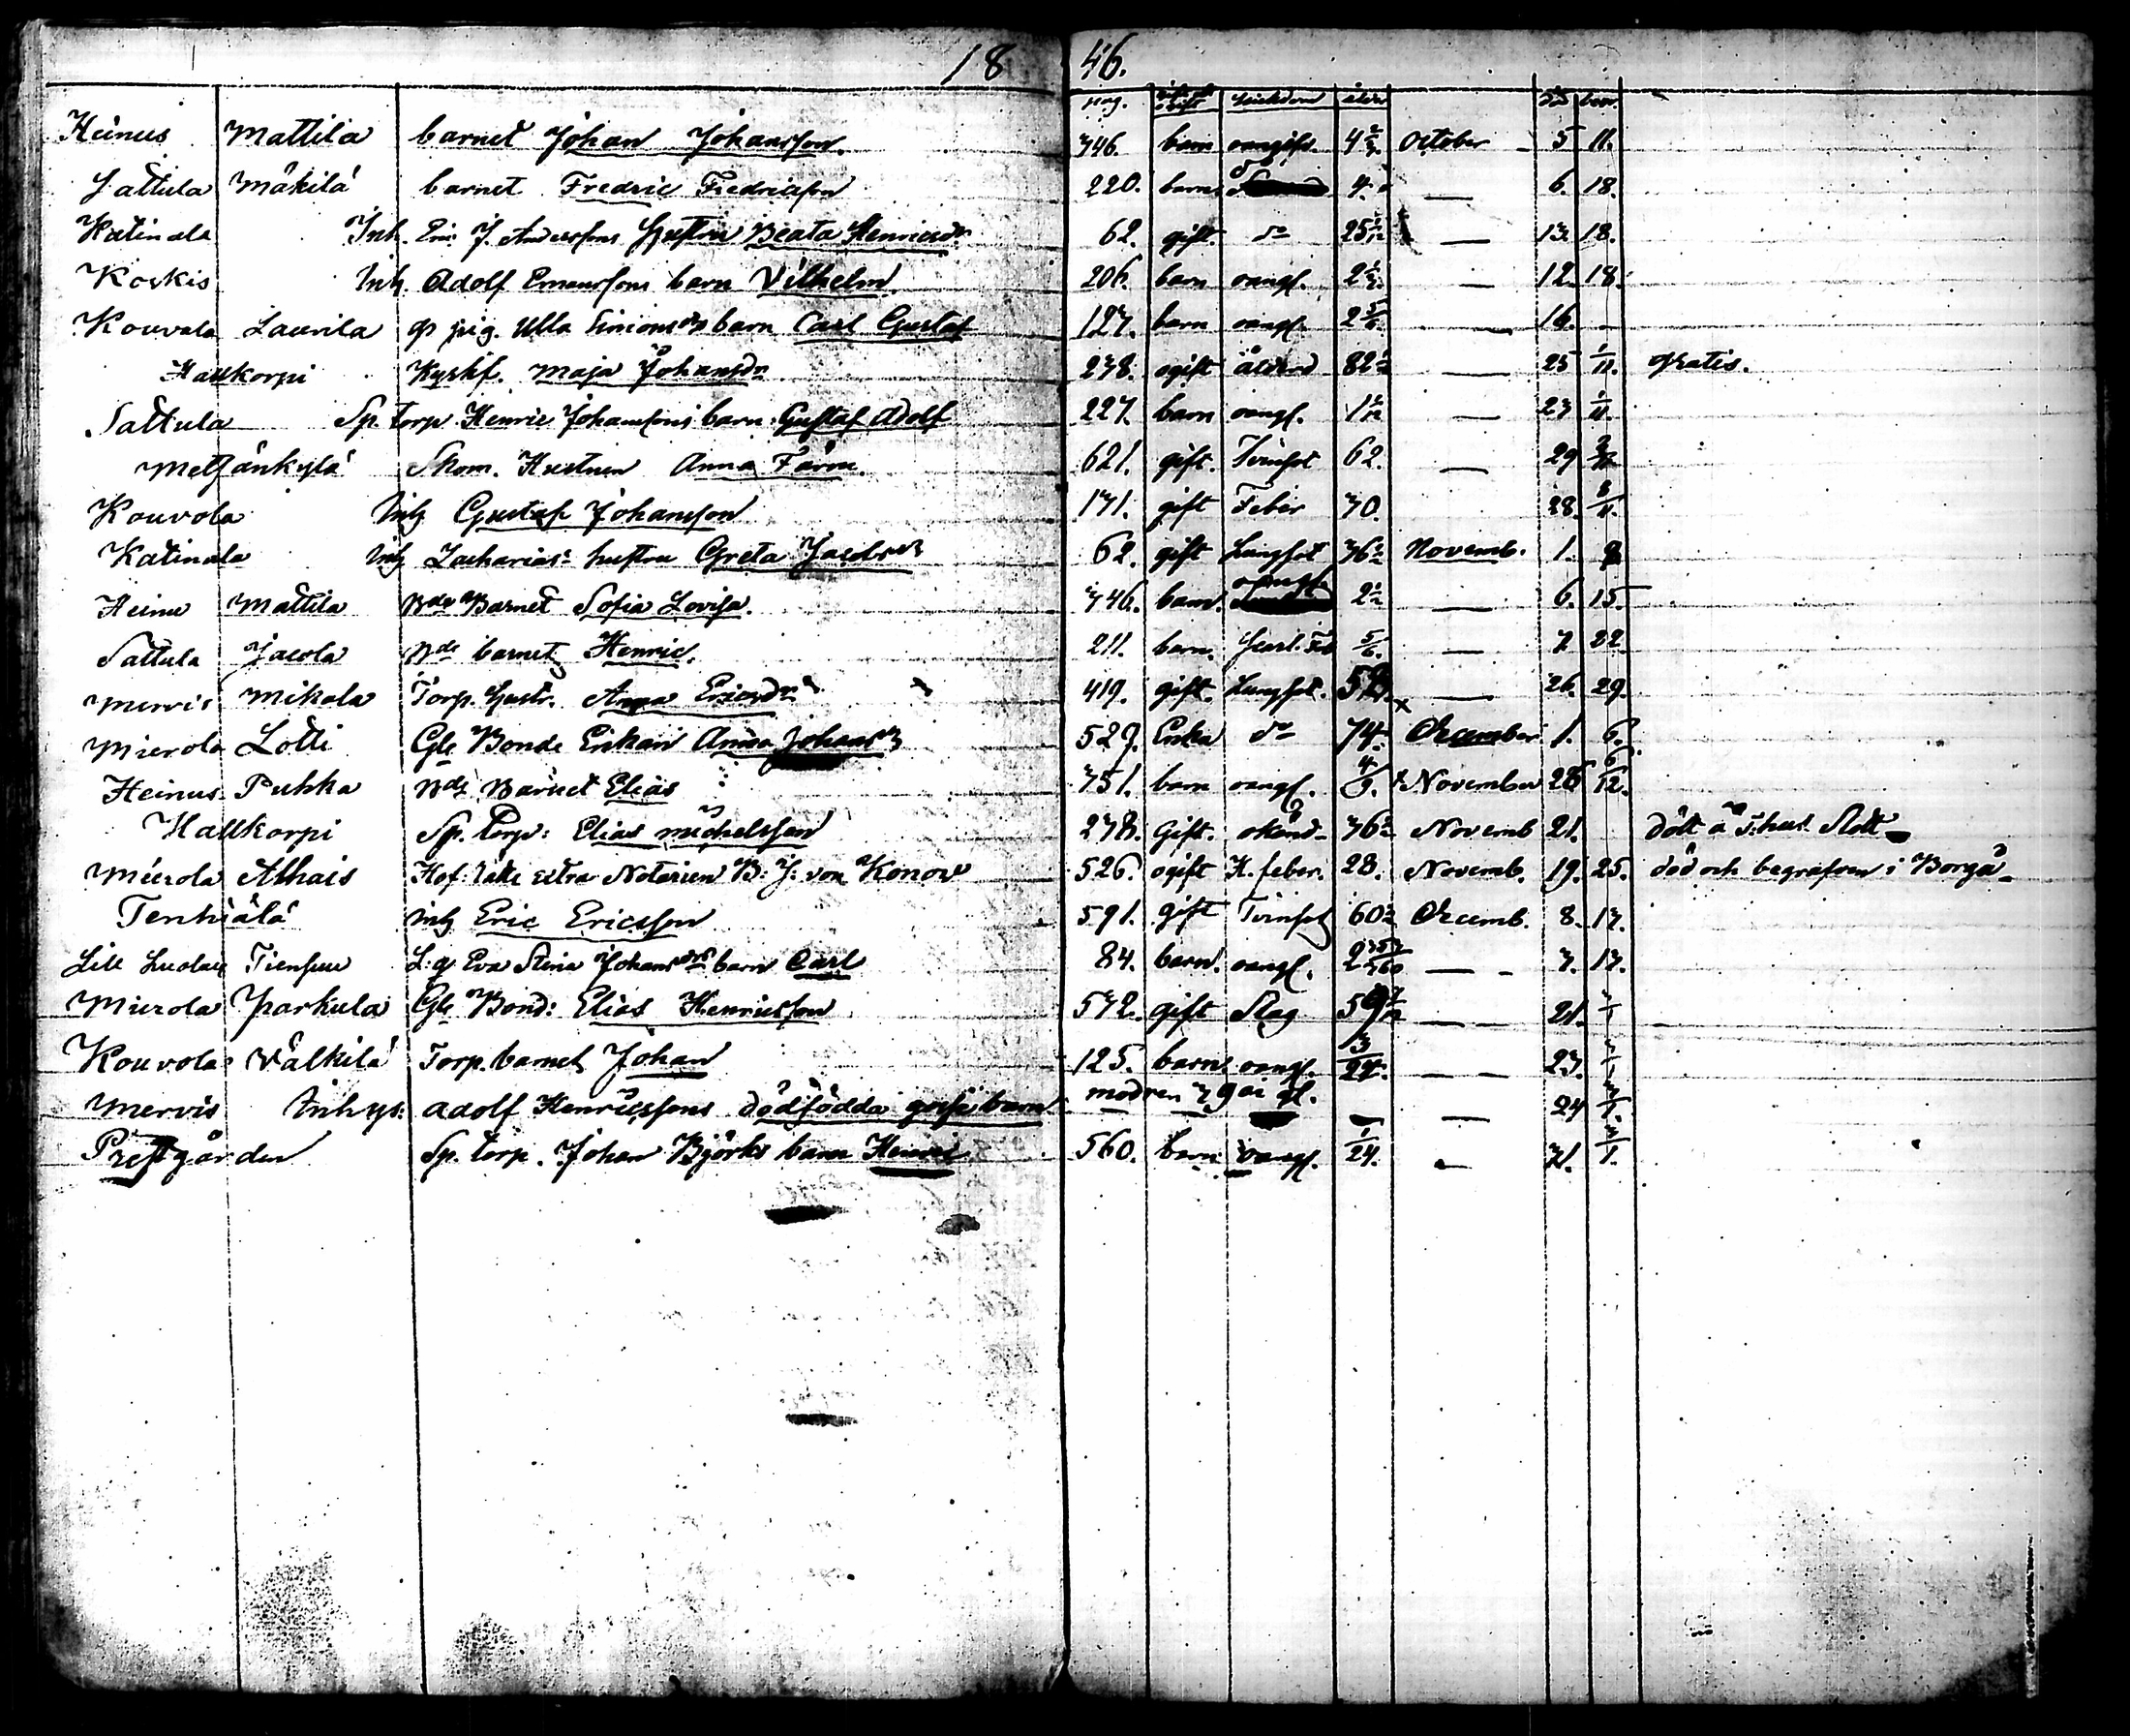 1846.
pag. ålder död begr.
Heinus Mattila barnet Johan Johansson. 346. barn oangifv. 4 October 5 11.
Sattula Mäkilä barnet Fredric Fredricsson 220. barn 4. — 6. 18.
Katinala Inh. Eric J. Anderssons Hustru Beata Henricsdr 62. gift. do 25 — 13. 18.
Koskis Inh. Adolf Emanssons barn Vilhelm. 206. barn oangf. 2 — 12. 18.
Kouvola Laurila qs pig. Ulla Simonsdrs barn Carl Gustaf 127. barn oangf. 2 5/6. — 16. -
Hattkorpi Kyrkf. Maja Johansdr 278. ogift ålderd 82 — 25 1/11. gratis.
Sattula Sp. torp. Henric Johanssons barn Gustaf Adolf 227. barn oangf. 1 — 27 1/11.
Metjänkylä Skom. Hustrun Anna Färm. 621. gift. Tvinsot 62. — 29
Kouvola Inh Gustaf Johansson 171. gift Feber 70. 28. 8/11.
Katinala Inh Zacharias: hustru Greta Jacobsdr 62. gift Lungsot 36 Novemb. 1. 8
Heinu Mattila Bde Barnet Sofia Lovisa. 346. barn. oangf. 2 — 6. 15.
Sattula Jacola Bde barnet Henric. 211. barn. 5/6. — 7 22
Mervis Mikola Torp. hustr. Anna Ericsdr 419. gift. Lungsot. — 26. 29.
Mierola Lotti Gle Bonde Enkan Anna Johansdr 527. Enka do 74. December 1. 6.
Heinus Pukka Bde Barnet Elias 351. barn oangf. 4/9. November 28 6/12.
Hattkorpi Sp. torp: Elias Michelsson 278. Gift. okänd 36 Novemb 21. dött å T:hus Slott
Mierola Alhais Hof: rätts extra Notarien B: J: von Konow 526. ogift H. feber. 28. Novemb. 19. 25. död och begrafven i Borgå
Tenhiälä Inh Eric Ericsson 591. gift Tvinsot 60 Decemb. 8. 13.
Lill Luolais Tiensuu L: q Eva Stina Johansdrs barn Carl 84. barn. oangf. — - 7. 17.
Mierola Parkula Gle Bond: Elias Henricsson 572. gift Slag 59 — 21.
Kouvola Välkilä Torp. barnet Johan 125. barn. oangf. 13/24. — — 23.
Mervis Inhys: Adolf Henricssons dödfödda gossebarn modren — 24
Prestgården Sp. torp. Johan Björks barn Henric 560. barn oangf. 1/24. — 31.